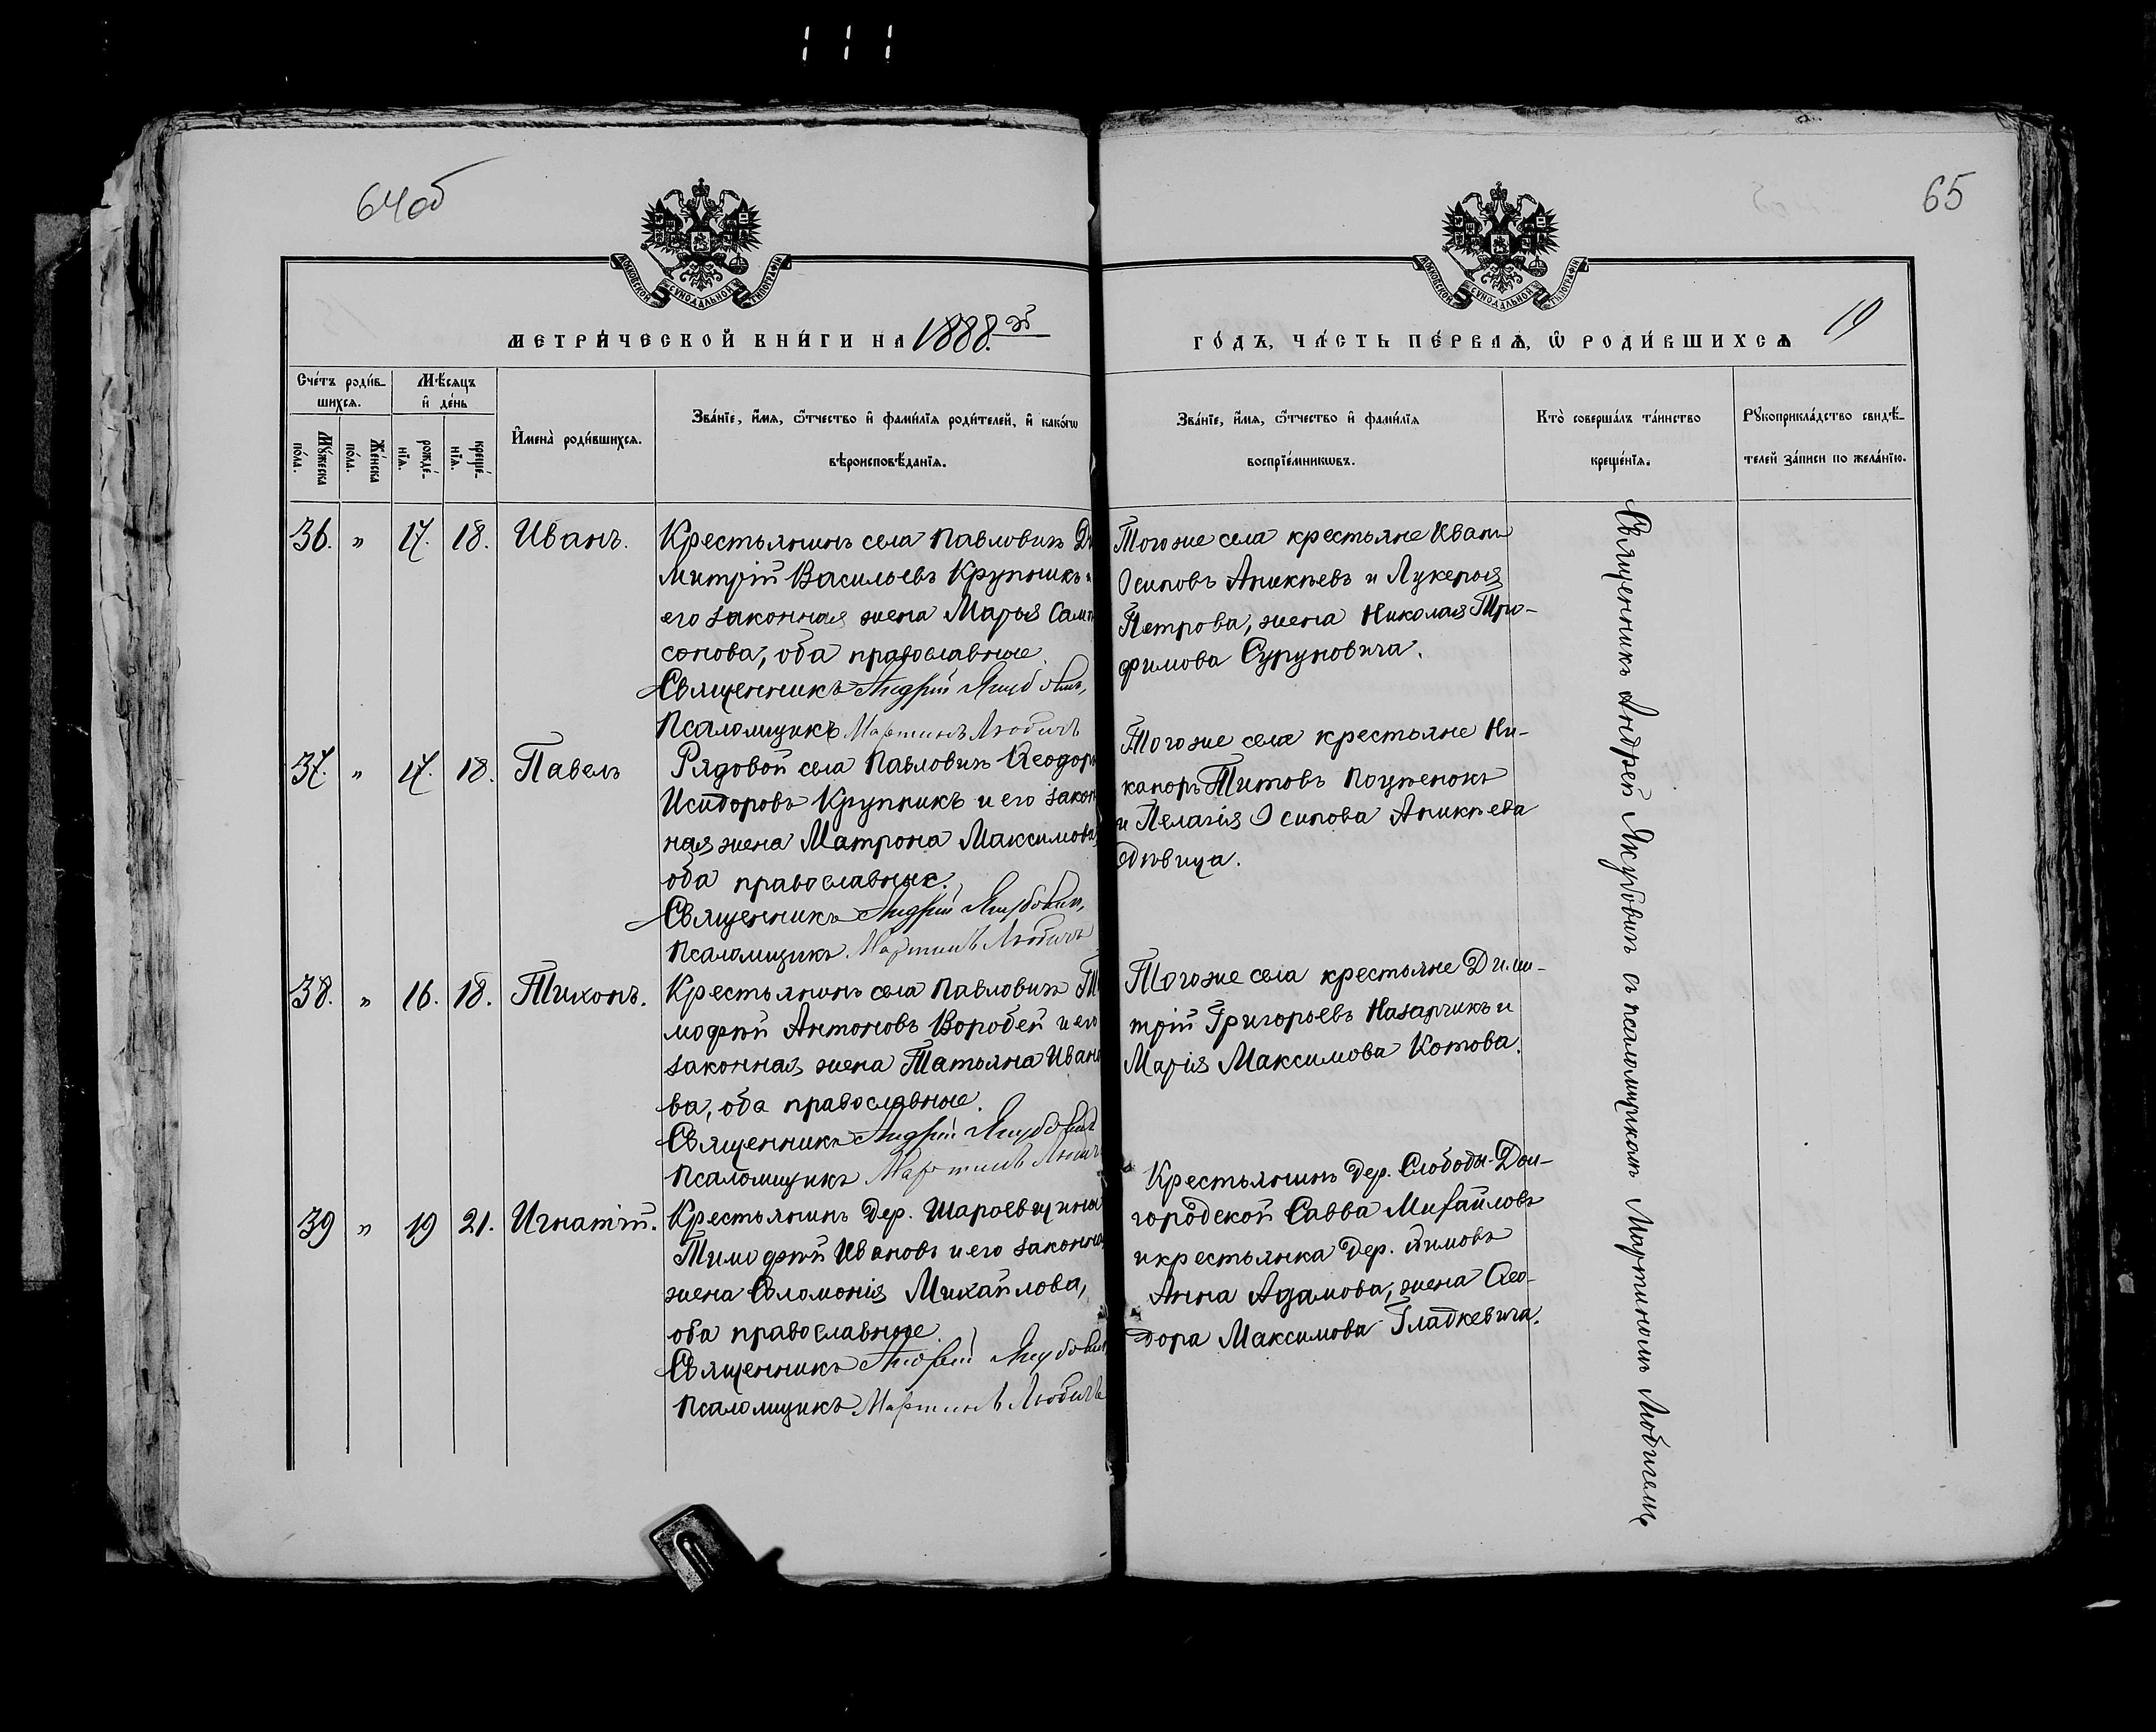 64об
65
МОСКОВСКОЙ СѴНОДАЛЬНОЙ ТИПОГРАФІИ
МОСКОВСКОЙ СѴНОДАЛЬНОЙ ТИПОГРАФІИ
МЕТРИ́ЧЕСКОЙ КНИ́ГИ НА 1888.й
ГО́ДЪ, ЧА́СТЬ ПЕ́РВАѦ, Ѽ РОДИ́ВШИХСѦ
19
Сче́тъ роди́в-
шихсѧ.
Мѣ́сѧцъ
и҆ де́нь
Мꙋ́жеска
по́ла.
Же́нска
по́ла.
рожде́-
нїѧ.
креще́-
нїѧ.
И҆мена̀ роди́вшихсѧ.
Зва́нїе, и҆́мѧ, ѻ҆́тчество и҆ фами́лїѧ роди́телей, и҆ како́гѡ
вѣроисповѣ́данїѧ.
Зва́нїе, и҆́мѧ, ѻ҆́тчество и҆ фами́лїѧ
воспрїе́мникѡвъ.
Кто̀ соверша́лъ та́инство
креще́нїѧ.
Рꙋкоприкла́дство свидѣ́-
телей за́писи по жела́нїю.
36. " 17. 18. Иванъ.
Крестьянинъ села Павловичъ Ди
митрій Васильевъ Крупникъ и
его законная жена Марья Самп
сонова, оба православные.
Священникъ Андрей Якубовичъ,
Псаломщикъ Мартинъ Любичъ
Тогоже села крестьяне Иванъ
Осиповъ Аникѣевъ и Лукерья
Петрова, жена Николая Три-
фимова Сурунович​а.
37. " 17. 18. Павелъ
Рядовой села Павловичъ Ѳеодоръ
Исидоровъ Крупникъ и его закон
ная жена Матрона Максимова,
оба православные.
Священникъ Андрей Якубовичъ,
Псаломщикъ Мартинъ Любичъ
Тогоже села крестьяне Ни-
каноръ Титовъ Поцѣенокъ
и Пелагія Осипова Аникѣева
дѣвица.
38. " 16. 18. Тихонъ.
Крестьянинъ села Павловичъ Ти
мофѣй Антоновъ Воробей и его
законная жена Татьяна Ивано
ва, оба православные.
Священникъ Андрей Якубовичъ
Псаломщикъ Мартинъ Любичъ
Тогоже села крестьяне Дими-
трій Григорьевъ Назарчикъ и
Марія Максимова Котова.
39 " 19 21. Игнатій.
Крестьянинъ дер. Шароевщины
Тимофѣй Ивановъ и его законная
жена Соломонія Михайлова,
оба православные.
Священникъ Андрей Якубовичъ
Псаломщикъ Мартинъ Любичъ
Крестьянинъ дер. Слободы-Дол-
городской Савва Михайловъ
и крестьянка дер.
Анна Адамова, жена Ѳео-
дора Максимова Гладкевича.
Священникъ Андрей Якубовичъ съ псаломщикомъ Мартиномъ Любичемъ